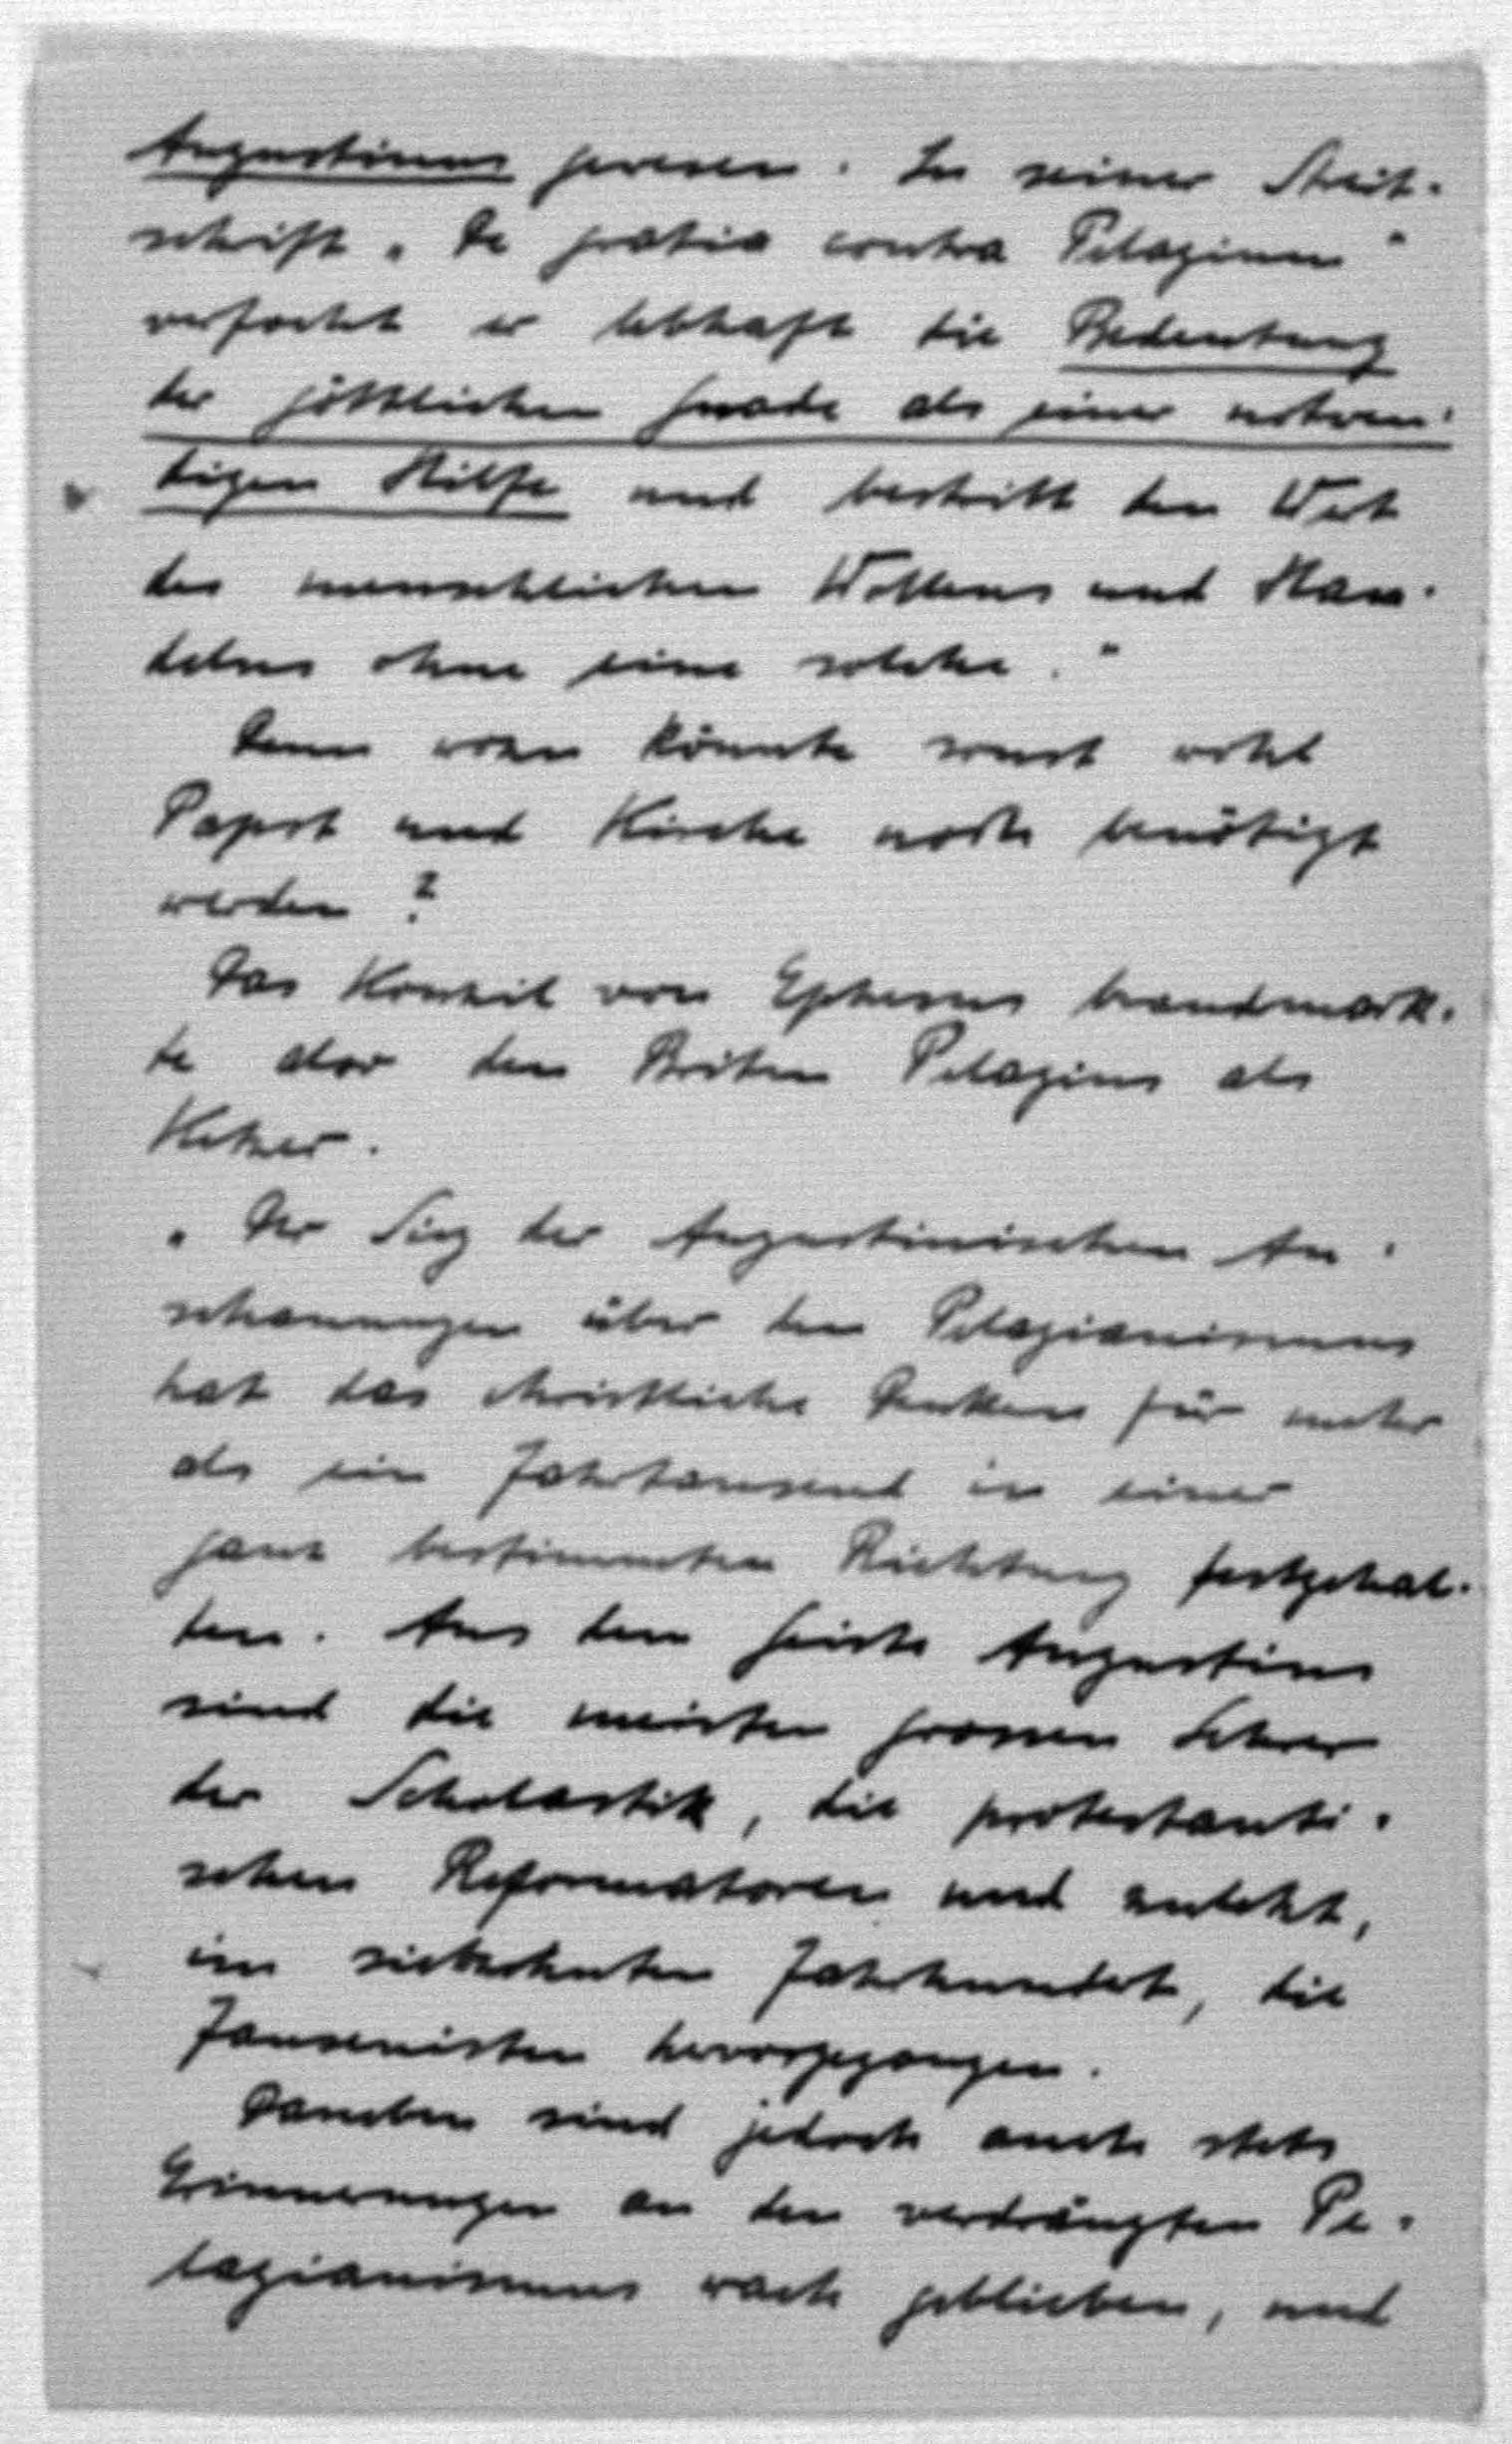 Augustinus gewesen. In seiner Streit-
schrift „De gratia contra Pelagium"
verfocht er lebhaft die Bedeutung
der göttlichen Gnade als einer notwen-
digen Hilfe und bestritt den Wert
des menschlichen Wollens und Han-
delns ohne eine solche."
Denn wozu könnte sonst wohl
Papst und Kirche noch benötigt
werden?
Das Konzil von Ephesus brandmark-
te aber den Briten Pelagius als
Ketzer.
„Der Sieg der Augustinischen An-
schauungen über den Pelagianismus
hat das christliche Denken für mehr
als ein Jahrtausend in einer
ganz bestimmten Richtung festgehal-
ten. Aus dem Geiste Augustins
sind die meisten grossen Lehrer
der Scholastik, die protestanti-
schen Reformatoren und zuletzt,
im siebzehnten Jahrhundert, die
Jansenisten hervorgegangen.
Daneben sind jedoch auch stets
Erinnerungen an den verdrängten Pe-
lagianismus wach geblieben, und